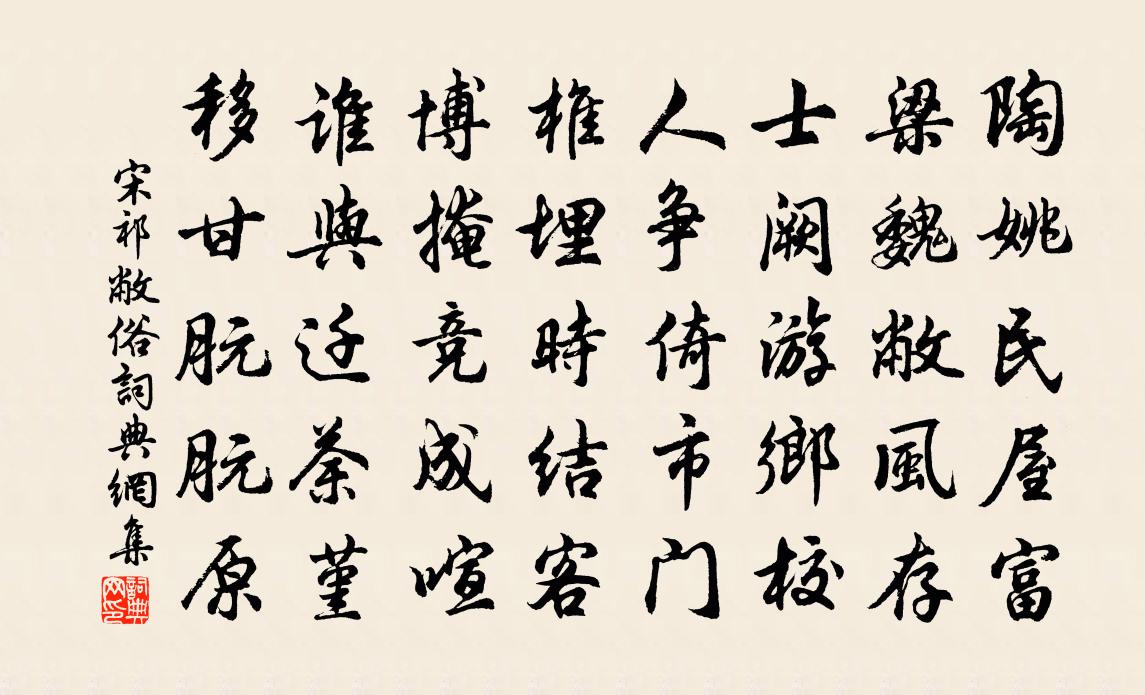 陶姚民屋富
梁魏敝風存
士阙游鄉校
人争倚市门
椎埋時结客
博掩竞成喧
谁與迁荼堇
移甘朊朊原
宋祁敝俗詞典網集
詞典网印